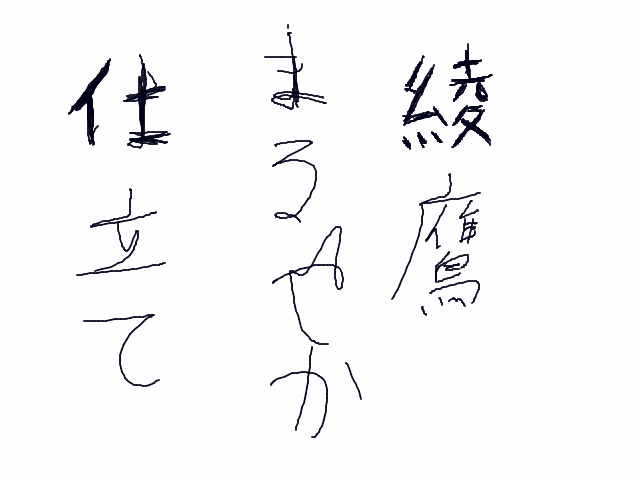 綾鷹
まろやか
仕立て